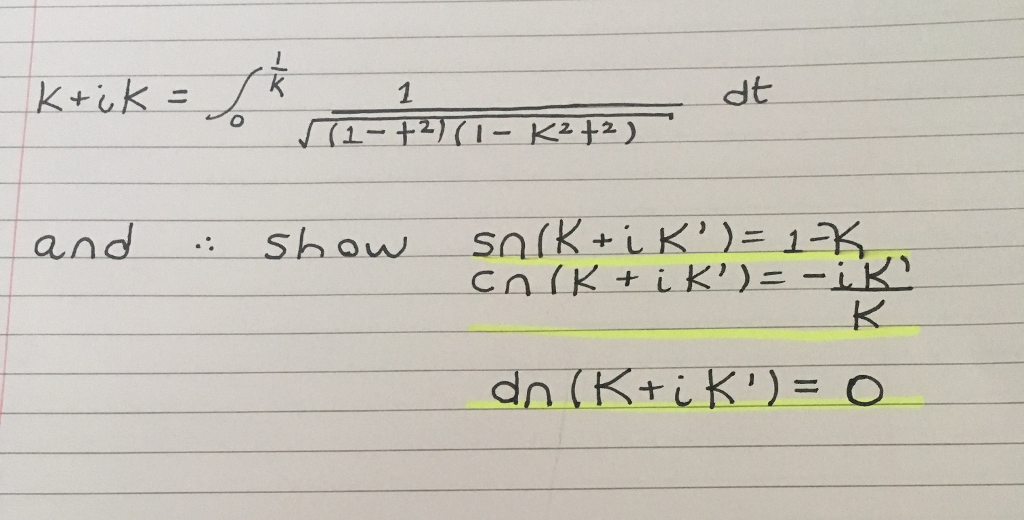 K+iK = ∫₀^(1/K) 1/√((1-t²)(1-K²t²)) dt
and ∴ show sn(K+iK')= 1-K
cn(K+iK')= -iK'/K
dn(K+iK')= 0